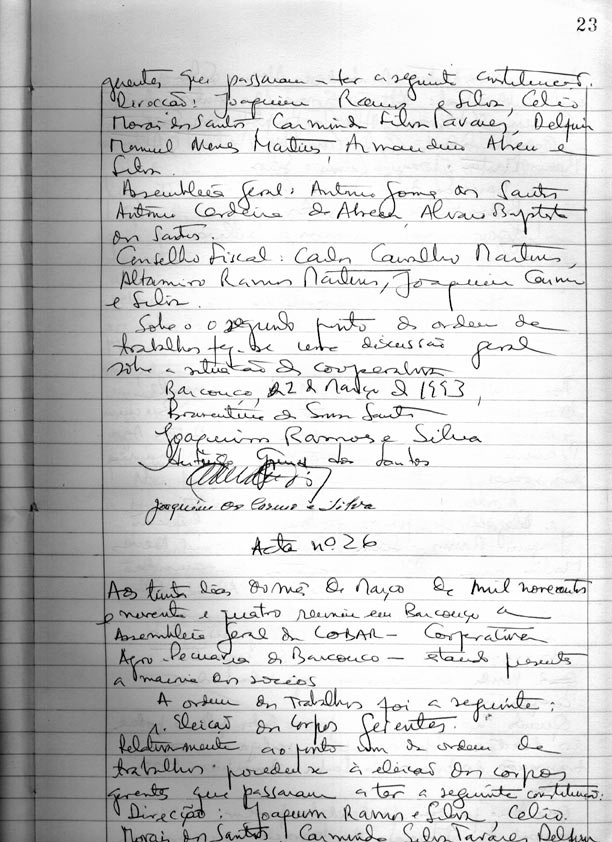 23
gerentes que passaram a ter a seguinte constituição.
Direcção: Joaquim Ramos e Silva, Celio
Morais dos Santos, Carminda Silva Tavares, Delfim
Manuel Neves Martins, Armandino Abreu e
Silva.
Assembleia Geral: António Gomes dos Santos
António Cordeiro de Abreu, Alvaro Baptista
dos Santos.
Conselho Fiscal: Carlos Carvalho Martins,
Altamiro Ramos Martins, Joaquim Carmo
e Silva.
Sobre o segundo ponto da ordem de
trabalhos fez-se uma discussão geral
sobre a situação da cooperativa
Barcouço, 22 de Março de 1993,
de Sousa Santos
Joaquim Ramos e Silva
António Gomes dos Santos
Joaquim do Carmo e Silva
Acta nº 26
Aos trinta dias do mês de Março de mil novecentos
e noventa e quatro reuniu em Barcouço a
Assembleia Geral da COBAR - Cooperativa
Agro-Pecuária de Barcouço - estando presentes
a maioria dos sócios
A ordem dos Trabalhos foi a seguinte:
1. Eleição dos Corpos Gerentes.
Relativamente ao ponto um da ordem de
trabalhos procedeu-se à eleição dos corpos
gerentes que passaram a ter a seguinte constituição:
Direcção: Joaquim Ramos e Silva, Celio
Morais dos Santos, Carminda Silva Tavares Delfim